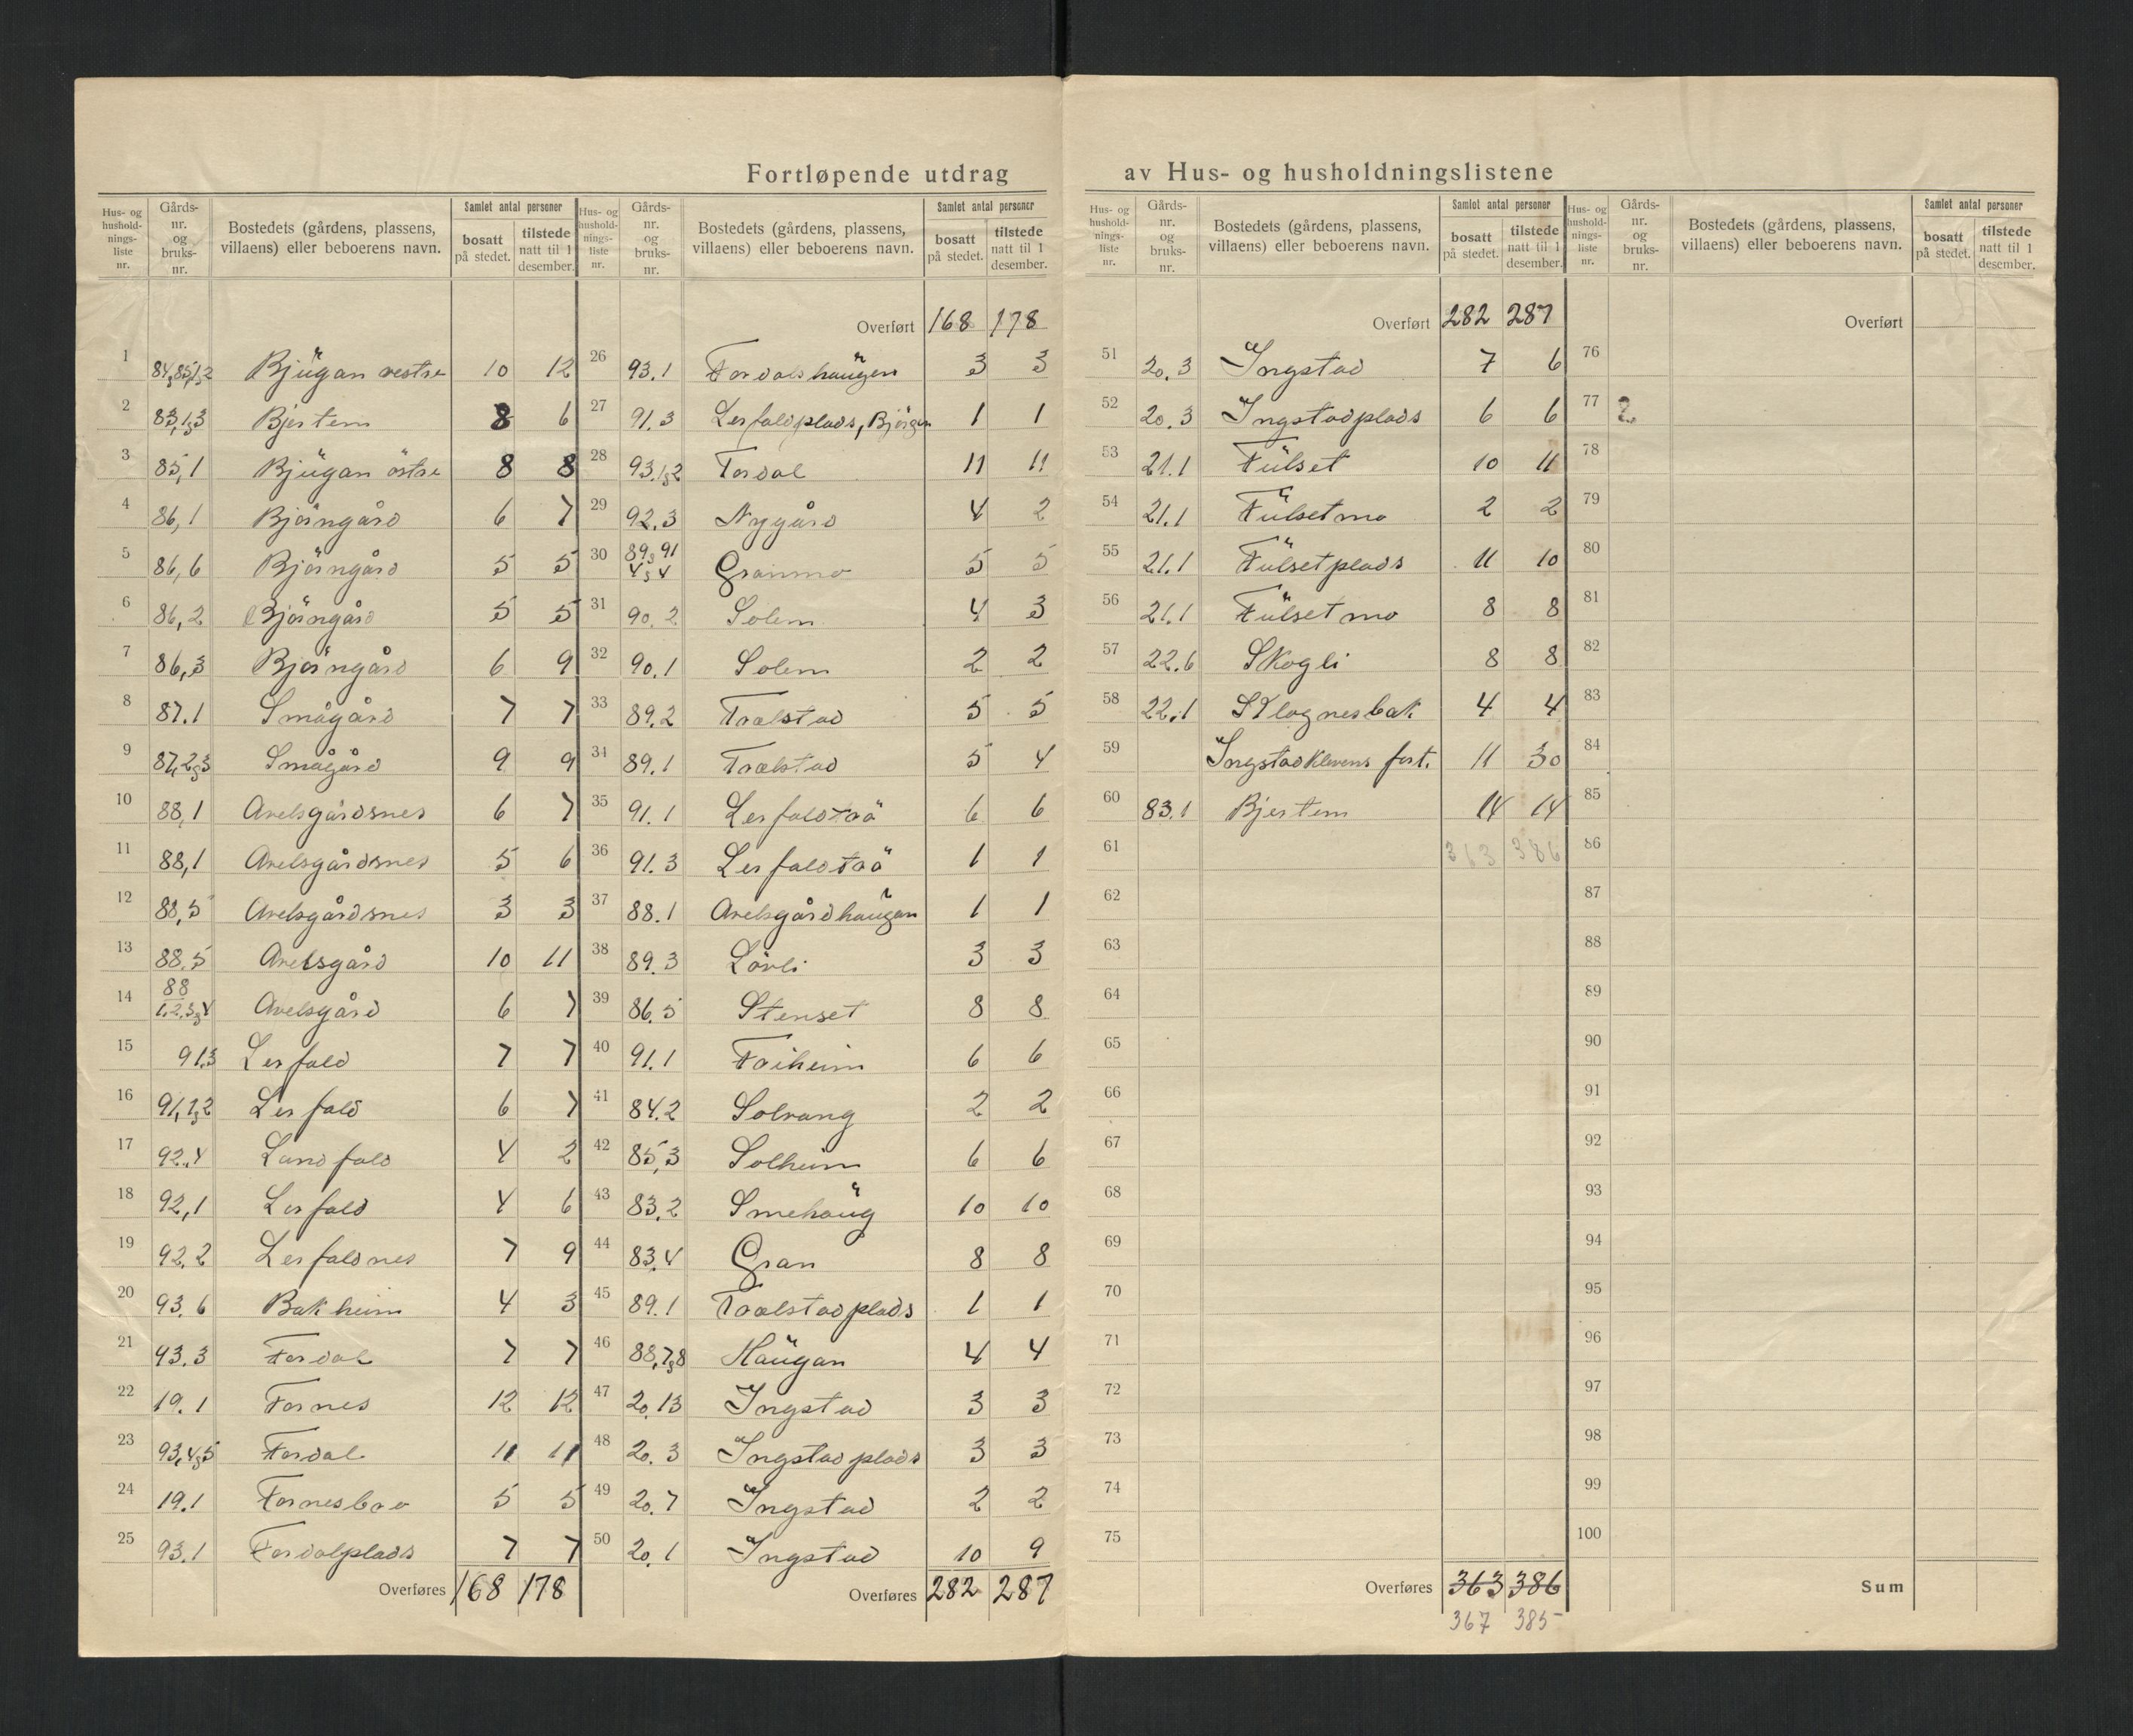 Fortløpende utdrag av Hus- og husholdningslistene
Hus- og husholdnings-liste nr. Gårds-nr. og bruks-nr. Bostedets (gårdens, plassens, villaens) eller beboerens navn. Samlet antal personer bosatt på stedet. tilstede natt til 1 desember.
1 84,85,1,2 Bjügan vestre 10 12
2 83,1,3 Bjertem 8 6
3 85,1 Bjügan östre 8 8
4 86,1 Björngård 6 7
5 86,6 Björngård 5 5
6 86,2 Björngård 5 5
7 86,3 Björngård 6 9
8 87.1 Smågård 7 7
9 87,2,3 Smågård 9 9
10 88,1 Arelsgårdsnes 6 7
11 88,1 Arelsgårdsnes 5 6
12 88,5 Arelsgårdsnes 3 3
13 88.5 Arelsgård 10 11
14 88 1.2.3,4 Arelsgård 6 7
15 91.3 Lerfald 7 7
16 91,1,2 Lerfald 6 7
17 92.4 Landfald 4 2
18 92,1 Lerfald 4 6
19 92.2 Lerfaldnes 7 9
20 93.6 Bakheim 4 3
21 93.3 Fordal 7 7
22 19.1 Fornes 12 12
23 93,4,5 Fordal 11 11
24 19.1 Fornesbro 5 5
25 93.1 Fordalplads 7 7
Overføres 168 178
Hus- og husholdnings-liste nr. Gårds-nr. og bruks-nr. Bostedets (gårdens, plassens, villaens) eller beboerens navn. Samlet antal personer bosatt på stedet. tilstede natt til 1 desember.
Overført 168 178
26 93.1 Fordalshaügen 3 3
27 91.3 Lerfaldplads, Björgen 1 1
28 93.1,2 Fordal 11 11
29 92.3 Nygård 4 2
30 89,91 4,4 Granmo 5 5
31 90.2 Solem 4 3
32 90.1 Solem 2 2
33 89.2 Traelstad 5 5
34 89.1 Traelstad 5 4
35 91.1 Lerfaldtrö 6 6
36 91.3 Lerfaldtrö 1 1
37 88.1 Arelsgårdhaügan 1 1
38 89.3 Lövli 3 3
39 86.5 Stenset 8 8
40 91.1 Friheim 6 6
41 84.2 Solvang 2 2
42 85,3 Solheim 6 6
43 83,2 Smehaüg 10 10
44 83,4 Gran 8 8
45 89.1 Traelstadplads 1 1
46 88,7,8 Haügan 4 4
47 20,13 Ingstad 3 3
48 20.3 Ingstadplads 3 3
49 20.7 Ingstad 2 2
50 20.1 Ingstad 10 9
Overføres 282 287
Hus- og husholdnings-liste nr. Gårds-nr. og bruks-nr. Bostedets (gårdens, plassens, villaens) eller beboerens navn. Samlet antal personer bosatt på stedet. tilstede natt til 1 desember.
Overført 282 287
51 20.3 Ingstad 7 6
52 20.3 Ingstadplads 6 6
53 21.1 Fülset 10 11
54 21.1 Fülsetmo 2 2
55 21.1 Fülsetplads 11 10
56 21.1 Fülsetmo 8 8
57 22.6 Skogli 8 8
58 22.1 Sklognesbak 4 4
59 Ingstadklevens fort. 11 30
60 83.1 Bjertem 14 14
61 363 386
62
63
64
65
66
67
68
69
70
71
72
73
74
75
Overføres 363 386
367 385
Hus- og husholdnings-liste nr. Gårds-nr. og bruks-nr. Bostedets (gårdens, plassens, villaens) eller beboerens navn. Samlet antal personer bosatt på stedet. tilstede natt til 1 desember.
Overført
76
77 2
78
79
80
81
82
83
84
85
86
87
88
89
90
91
92
93
94
95
96
97
98
99
100
Sum